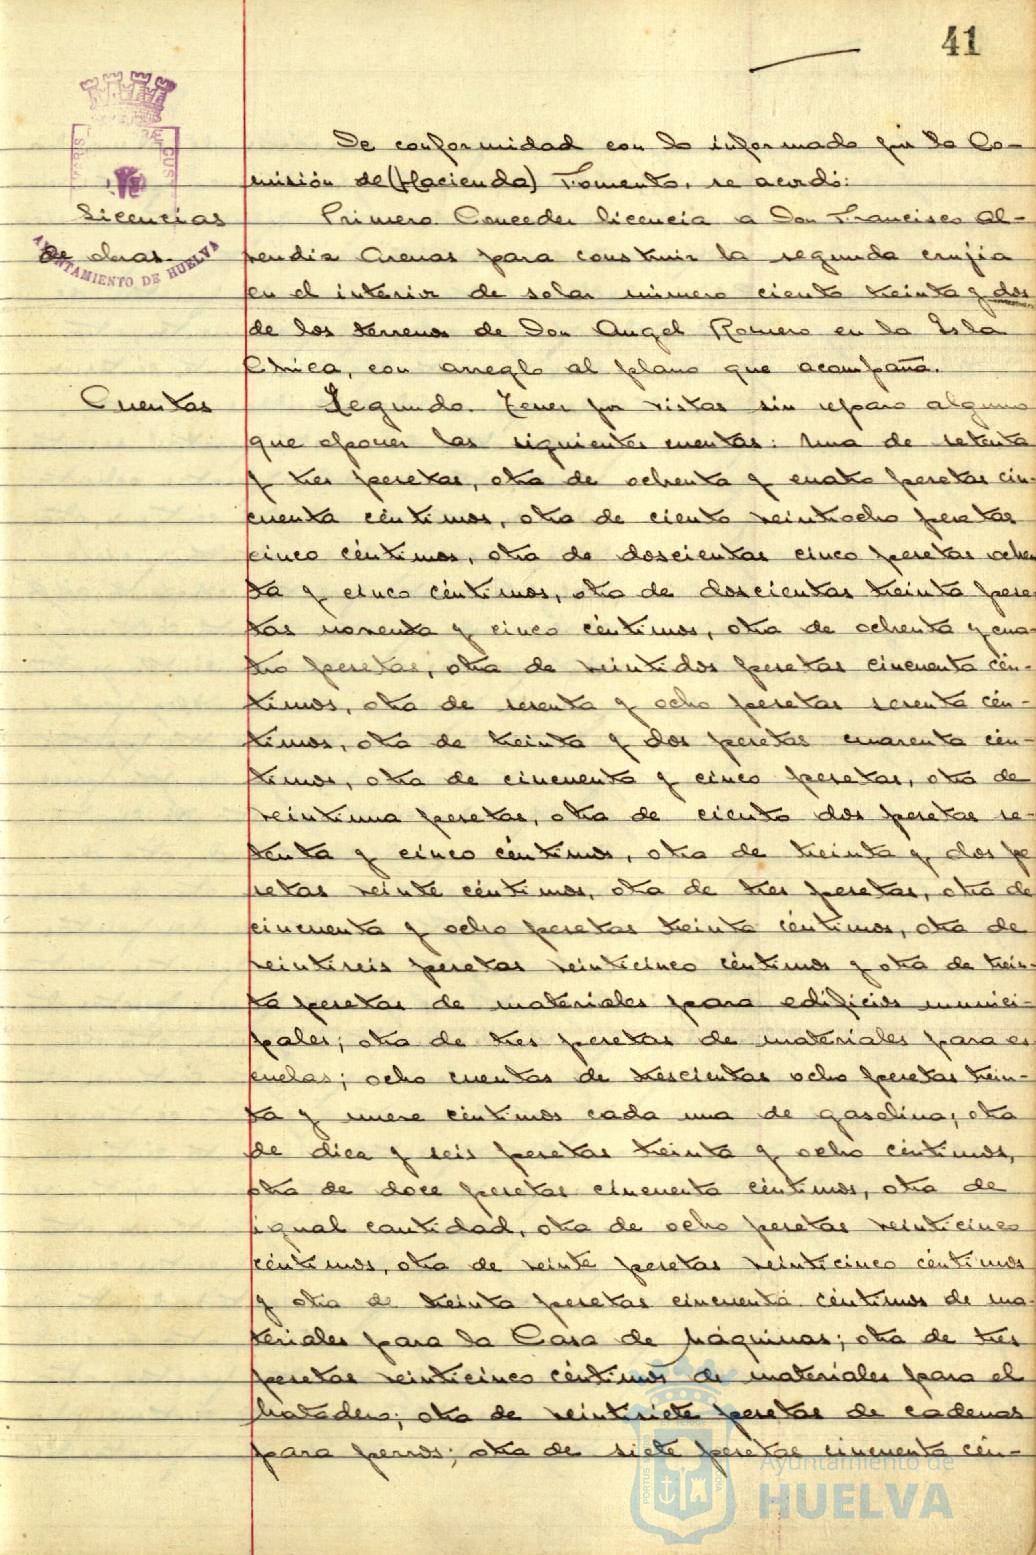 41
De conformidad con lo informado por la Co-
misión de (Hacienda) Fomento, se acordó:
Licencias
de obras.
AYUNTAMIENTO DE HUELVA
Primero. Conceder licencia a Don Francisco Al-
Arenas para construir la segunda crujía
en el interior de solar número ciento treinta y dos
de los terrenos de Don Angel Romero en la Isla
Chica, con arreglo al plano que acompaña.
Cuentas
Segundo. Tener por vistas sin reparo alguno
que oponer las siguientes cuentas: Una de setenta
y tres pesetas, otra de ochenta y cuatro pesetas cin-
cuenta céntimos, otra de ciento veintiocho pesetas
cinco céntimos, otra de doscientas cinco pesetas ochen
ta y cinco céntimos, otra de doscientas treinta pese
tas noventa y cinco céntimos, otra de ochenta y cua-
tro pesetas, otra de veintidos pesetas cincuenta cén-
timos, otra de sesenta y ocho pesetas sesenta cén-
timos, otra de treinta y dos pesetas cuarenta cén-
timos, otra de cincuenta y cinco pesetas, otra de
veintiuna pesetas, otra de ciento dos pesetas se-
tenta y cinco céntimos, otra de treinta y dos pe
setas veinte céntimos, otra de tres pesetas, otra de
cincuenta y ocho pesetas treinta céntimos, otra de
veintiseis pesetas veinticinco céntimos y otra de trein-
ta pesetas de materiales para edificios munici-
pales; otra de tres pesetas de materiales para es
cuelas; ocho cuentas de trescientas ocho pesetas trein-
ta y nueve céntimos cada una de gasolina; otra
de diez y seis pesetas treinta y ocho céntimos,
otra de doce pesetas cincuenta céntimos, otra de
igual cantidad, otra de ocho pesetas veinticinco
céntimos, otra de veinte pesetas veinticinco céntimos
y otra de treinta pesetas cincuenta céntimos de ma-
teriales para la Casa de Máquinas; otra de tres
pesetas veinticinco céntimos de materiales para el
Matadero; otra de veintisiete pesetas de cadenas
para perros; otra de siete pesetas cincuenta cén-
Ayuntamiento de
HUELVA